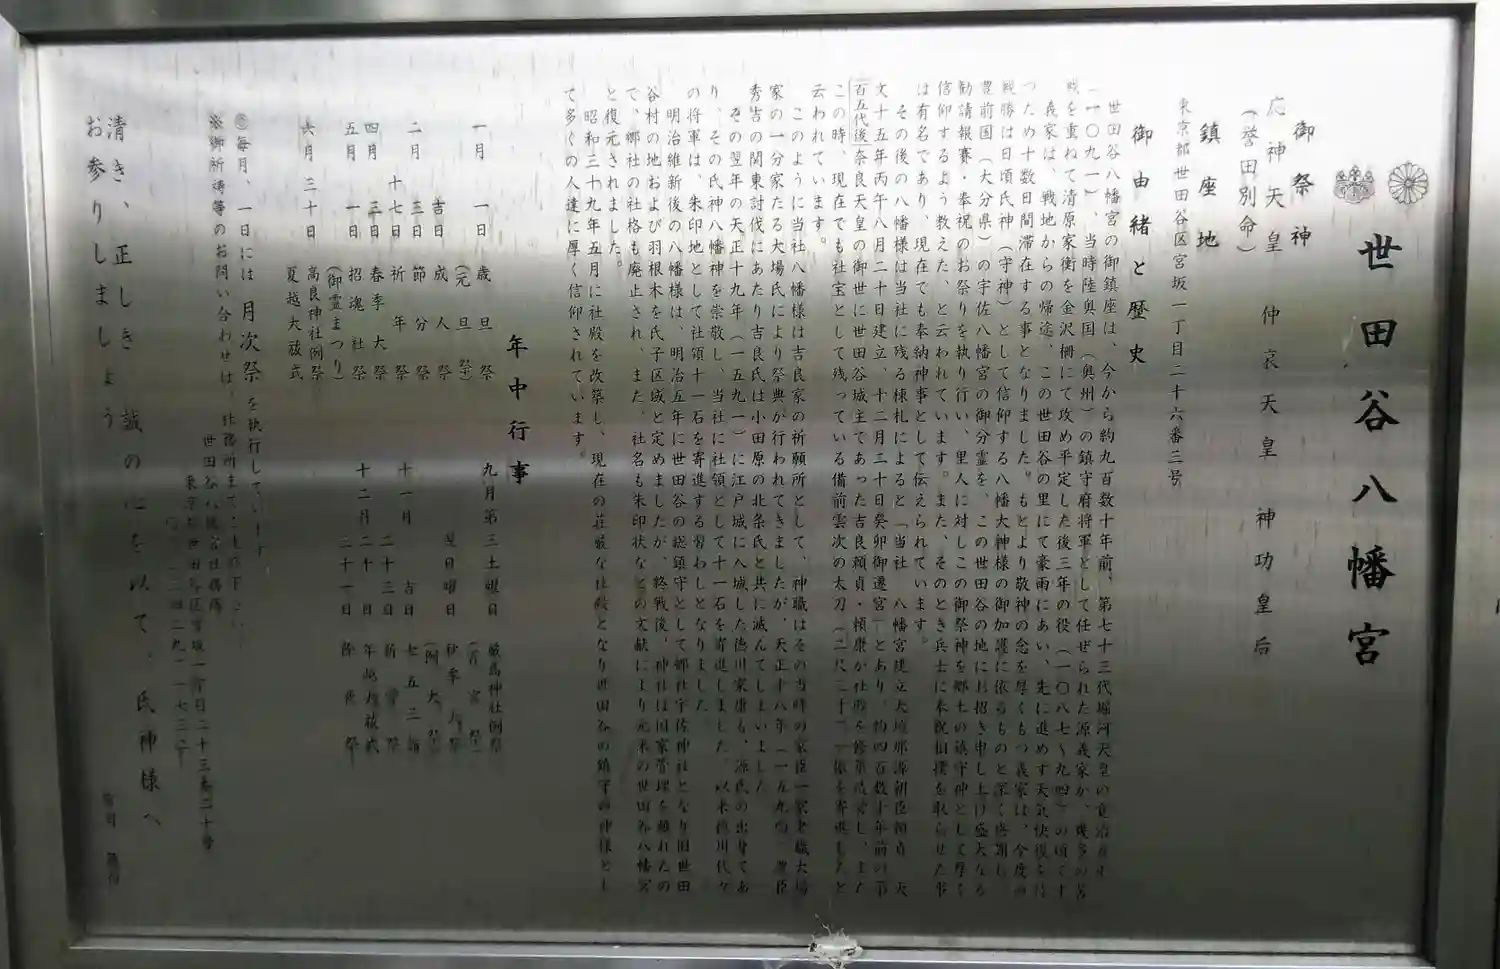 世田谷八幡宮
御祭神
応神天皇 仲哀天皇 神功皇后
(誉田別命)
鎮座地
東京都世田谷区宮坂一丁目二十六番三号
御由緒と歴史
世田谷八幡宮の御鎮座は、今から約九百数十年前、第七十三代堀河天皇の寛治五年
(一〇九一)、当時陸奥国(奥州)の鎮守府将軍として任ぜられた源義家が、幾多の苦
戦を重ねて清原家衡を金沢柵にて攻め平定した後三年の役(一〇八七〜九四)の頃です
義家は、戦地からの帰途、この世田谷の里にて豪雨にあい、先に進めず天気快復を待
つため十数日間滞在する事となりました。もとより敬神の念を厚くもつ義家は、今度の
戦勝は日頃氏神(守神)として信仰する八幡大神様の御加護に依るものと深く感謝し、
豊前国(大分県)の宇佐八幡宮の御分霊を、この世田谷の地にお招き申し上げ盛大なる
勧請報賽・奉祝のお祭りを執り行い、里人に対しこの御祭神を郷土の鎮守神として厚く
信仰するよう教えた、と云われています。また、そのとき兵士に奉祝相撲を取らせた事
は有名であり、現在でも奉納神事として伝えられています。
その後の八幡様は当社に残る棟札によると「当社 八幡宮建立大檀那源朝臣頼貞 天
文十五年丙午八月二十日建立、十二月二十日癸卯御遷宮」とあり、約四百数十年前の第
百五代後奈良天皇の御世に世田谷城主であった吉良頼貞・頼康が社殿を修築造営し、また
この時、現在でも社宝として残っている備前雲次の太刀(二尺三寸)一振を寄進したと
云われています。
このように当社八幡様は吉良家の祈願所として、神職はその当時の家臣一家老職大場
家の一分家たる大場氏により祭典が行われてきましたが、天正十八年(一五九〇)、豊臣
秀吉の関東討伐にあたり吉良氏は小田原の北条氏と共に滅んでしまいました
その翌年の天正十九年(一五九一)に江戸城に入城した徳川家康も、源氏の出身であ
り、その氏神八幡神を崇敬し、当社に社領として十一石を寄進しました。以来徳川代々
の将軍は、朱印地として社領十一石を寄進する習わしとなりました。
明治維新後の八幡様は、明治五年に世田谷の総鎮守として郷社宇佐神社となり旧世田
谷村の地および羽根木を氏子区域と定めましたが、終戦後、神社は国家管理を離れたの
で、郷社の社格も廃止され、また、社名も朱印状などの文献により元来の世田谷八幡宮
と復元されました。
昭和三十九年五月に社殿を改築し、現在の荘厳な社殿となり世田谷の鎮守の神様とし
て多くの人達に厚く信仰されています。
年中行事
一月 一日 歳旦祭
(元旦祭)
吉日 成人祭
二月 三日 節分祭
十七日 祈年祭
四月 三日 春季大祭
五月 一日 招魂社祭
(御霊まつり)
六月 三十日 高良神社例祭
夏越大祓式
九月第三土曜日 厳島神社例祭
(宵宮祭)
翌日曜日 秋季大祭
(例大祭)
十一月 吉日 七五三詣
二十三日 新嘗祭
十二月 二十日 年越大祓式
三十一日 除夜祭
◎毎月、一日には月次祭を執行しています
※御祈祷等のお問い合わせは、社務所まで
世田谷八幡宮社務所
清き、正しき、誠の心を以て、氏神様へ
お参りしましょう